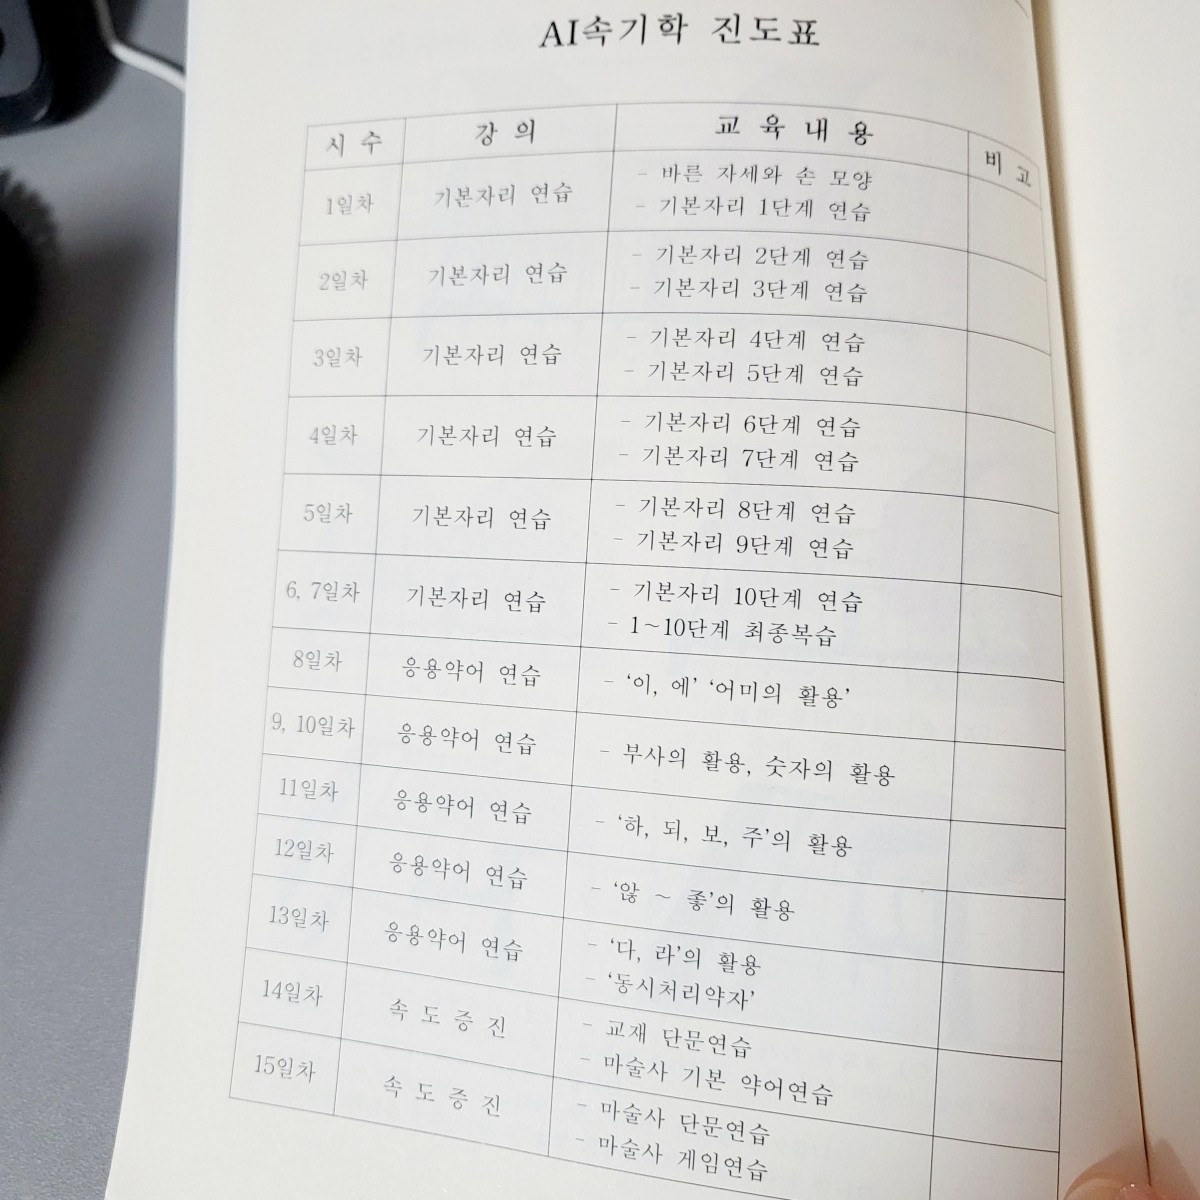 AI속기학 진도표
시 수 강 의 교 육 내 용 비 고
1일차 기본자리 연습 - 바른 자세와 손 모양
- 기본자리 1단계 연습
2일차 기본자리 연습 - 기본자리 2단계 연습
- 기본자리 3단계 연습
3일차 기본자리 연습 - 기본자리 4단계 연습
- 기본자리 5단계 연습
4일차 기본자리 연습 - 기본자리 6단계 연습
- 기본자리 7단계 연습
5일차 기본자리 연습 - 기본자리 8단계 연습
- 기본자리 9단계 연습
6, 7일차 기본자리 연습 - 기본자리 10단계 연습
- 1~10단계 최종복습
8일차 응용약어 연습 - ‘이, 에’ ‘어미의 활용’
9, 10일차 응용약어 연습 - 부사의 활용, 숫자의 활용
11일차 응용약어 연습 - ‘하, 되, 보, 주’의 활용
12일차 응용약어 연습 - ‘않 ~ 좋’의 활용
13일차 응용약어 연습 - ‘다, 라’의 활용
- ‘동시처리약자’
14일차 속 도 증 진 - 교재 단문연습
- 마술사 기본 약어연습
15일차 속 도 증 진 - 마술사 단문연습
- 마술사 게임연습